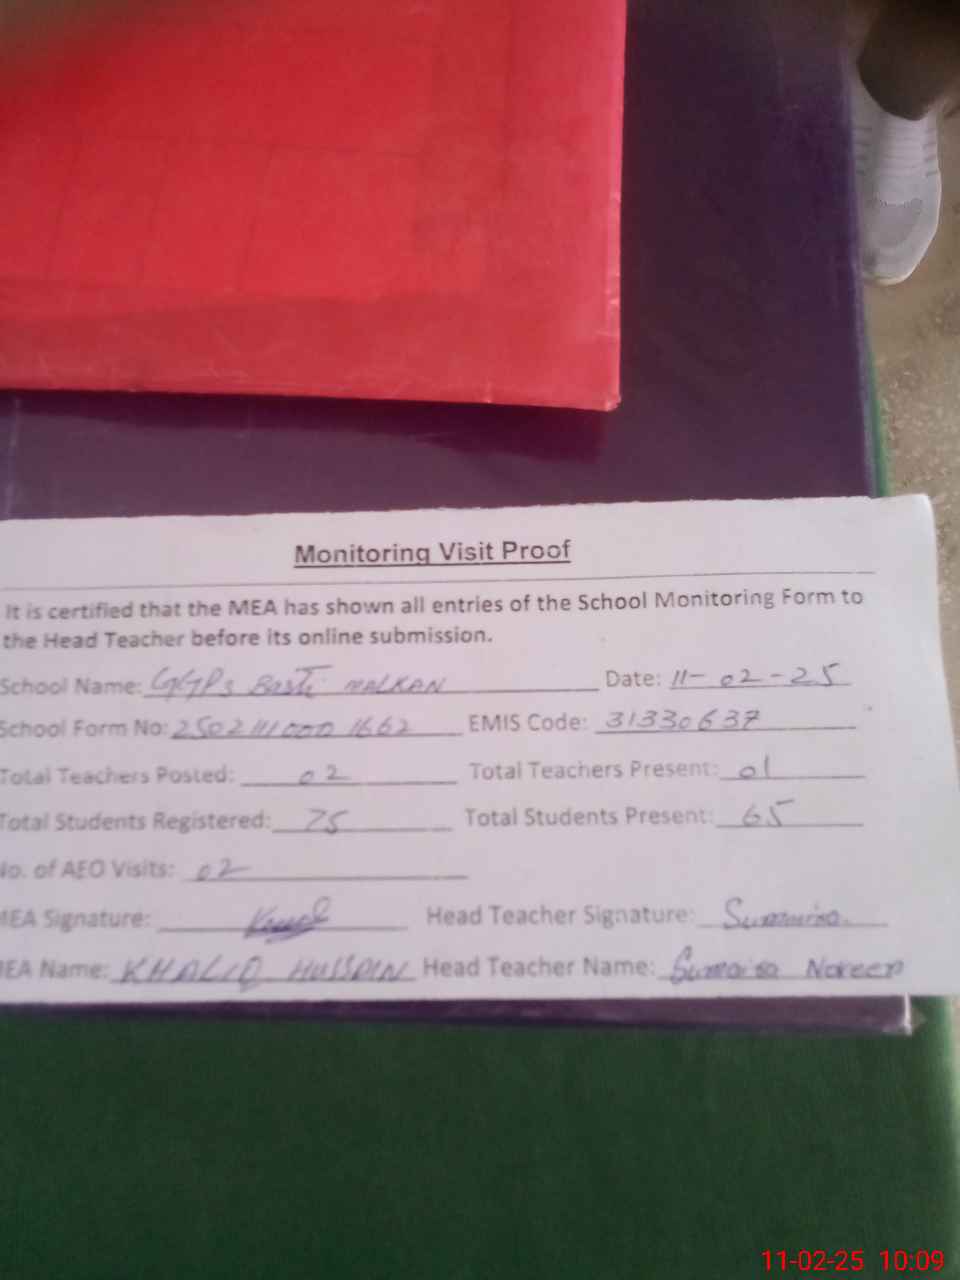 Monitoring Visit Proof
It is certified that the MEA has shown all entries of the School Monitoring Form to
the Head Teacher before its online submission.
School Name: GGPS Basti MALKAN Date: 11-02-25
School Form No: 2502111000 1662 EMIS Code: 31330637
Total Teachers Posted: 02 Total Teachers Present: 01
Total Students Registered: 75 Total Students Present: 65
No. of AEO Visits: 02
MEA Signature: Head Teacher Signature: Sumaira
MEA Name: KHALIQ HUSSAIN Head Teacher Name: Sumaira Noreen
11-02-25 10:09